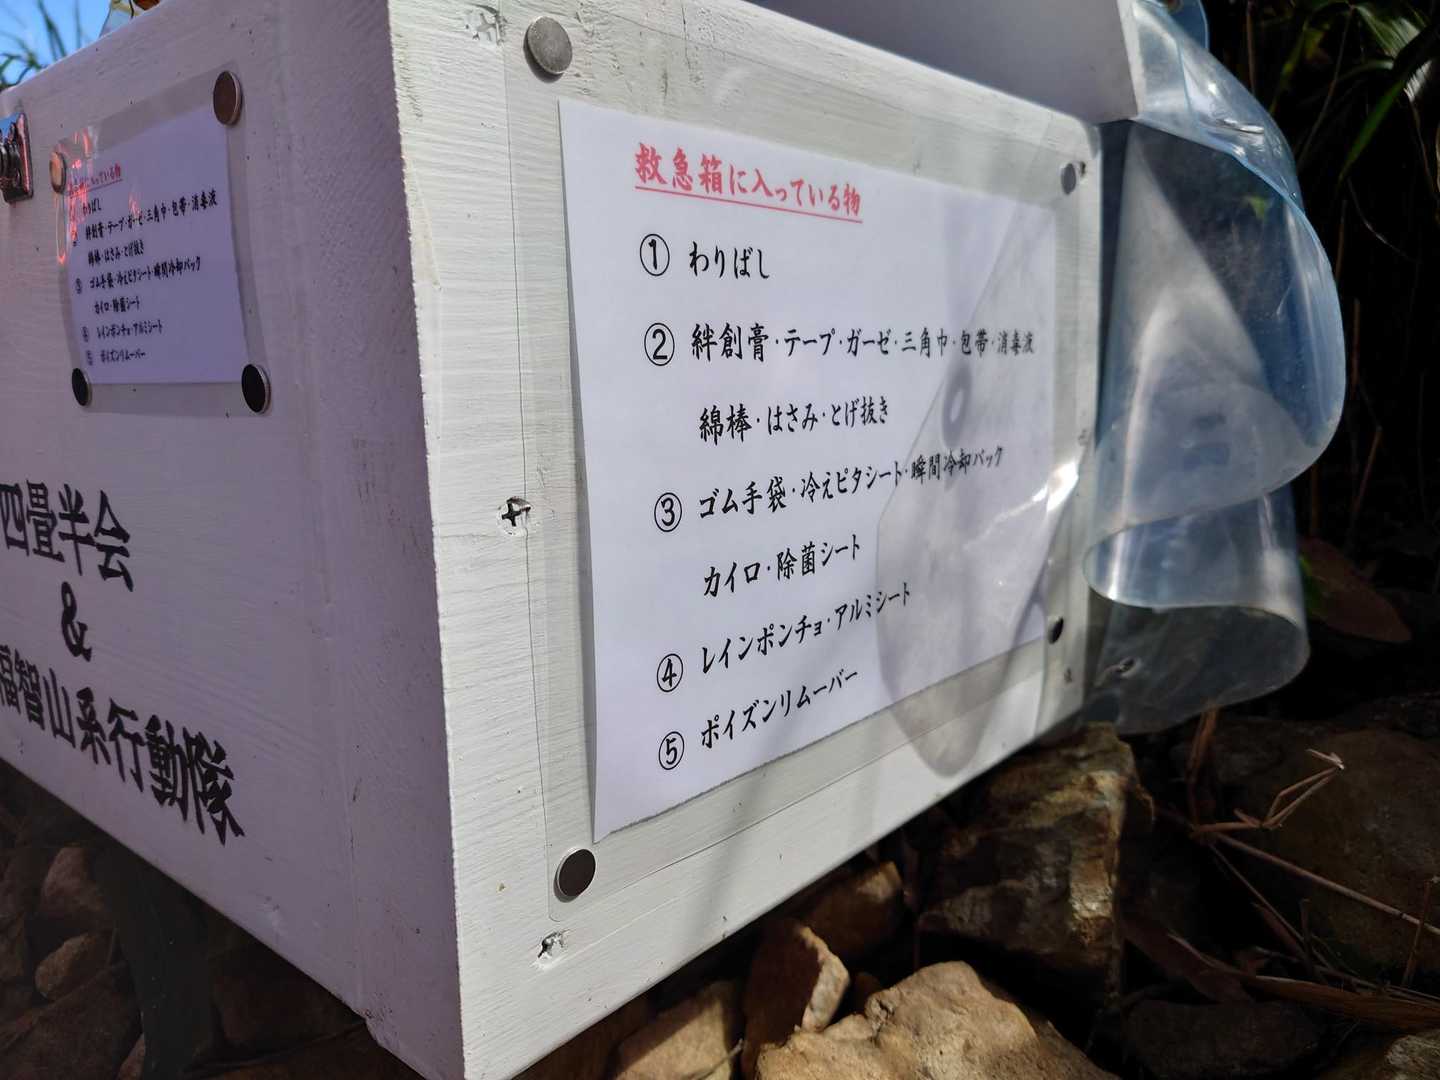 救急箱に入っている物
① わりばし
② 絆創膏・テープ・ガーゼ・三角巾・包帯・消毒液
綿棒・はさみ・とげ抜き
③ ゴム手袋・冷えピタシート・瞬間冷却パック
カイロ・除菌シート
④ レインポンチョ・アルミシート
⑤ ポイズンリムーバー
に入っている物
わりばし
絆創膏・テープ・ガーゼ・三角巾・包帯・消毒液
綿棒・はさみ・とげ抜き
③ ゴム手袋・冷えピタシート・瞬間冷却パック
カイロ・除菌シート
④ レインポンチョ・アルミシート
⑤ ポイズンリムーバー
四畳半会
&
福智山系行動隊